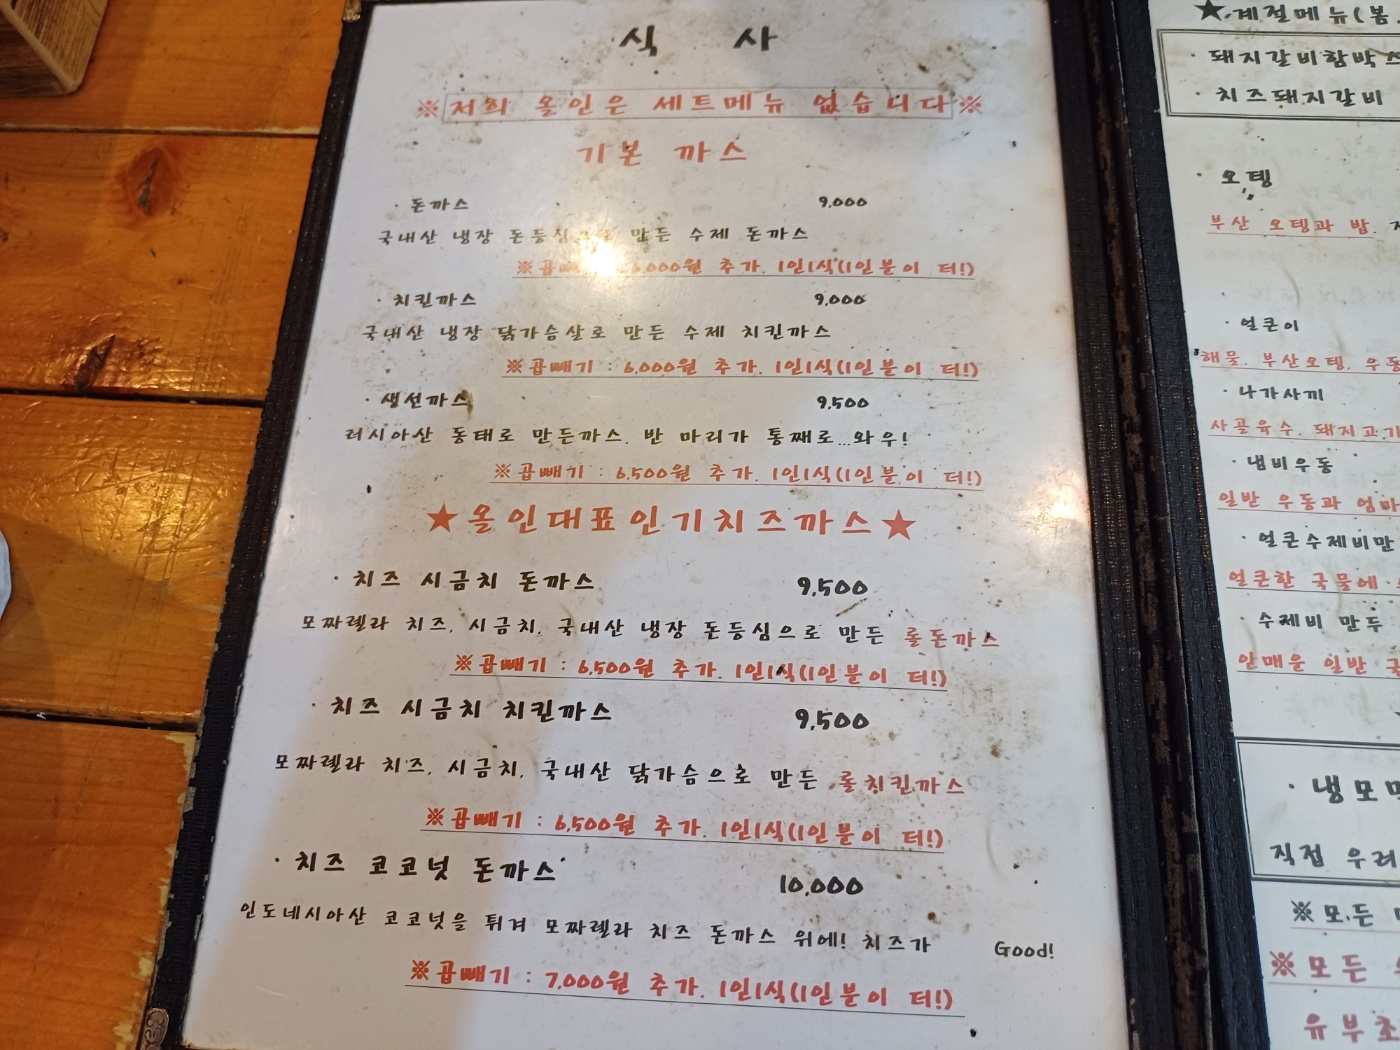 식 사
※저희 올인은 세트메뉴 없습니다※
기본 까스
· 돈까스 9,000
국내산 냉장 돈등심으로 만든 수제 돈까스
6,000원 추가. 1인1식(1인분이 더!)
· 치킨까스 9,000
국내산 냉장 닭가슴살로 만든 수제 치킨까스
※곱빼기 : 6,000원 추가. 1인1식(1인분이 더!)
· 생선까스 9,500
러시아산 동태로 만든까스. 반 마리가 통째로...와우!
※곱빼기 : 6,500원 추가. 1인1식(1인분이 더!)
★올인대표인기치즈까스★
· 치즈 시금치 돈까스 9,500
모짜렐라 치즈, 시금치, 국내산 냉장 돈등심으로 만든 롤돈까스
※곱빼기 : 6,500원 추가. 1인1식(1인분이 더!)
· 치즈 시금치 치킨까스 9,500
모짜렐라 치즈, 시금치, 국내산 닭가슴으로 만든 롤치킨까스
※곱빼기 : 6,500원 추가. 1인1식(1인분이 더!)
· 치즈 코코넛 돈까스 10,000
인도네시아산 코코넛을 튀겨 모짜렐라 치즈 돈까스 위에! 치즈가 Good!
※곱빼기 : 7,000원 추가. 1인1식(1인분이 더!)
★계절메뉴(봄,
· 돼지갈비함박스
· 치즈돼지갈비
· 오뎅
부산 오뎅과 밥.
· 얼큰이
해물, 부산오뎅, 우동
· 나가사끼
사골육수, 돼지고기
· 냄비우동
일반 우동과
· 얼큰수제비만
얼큰한 국물에
· 수제비 만두
안매운 일반 국
· 냉모밀
직접 우려
※모든
※모든
유부초